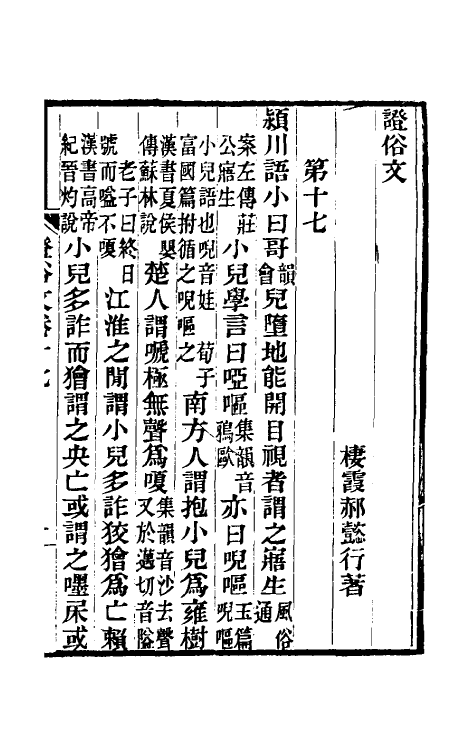 證俗文
棲霞郝懿行著
第十七
潁川語小曰哥韻會兒墮地能開目視者謂之寤生風俗通
案左傳莊公寤生小兒學言曰啞嘔集韻音鴉歐亦曰唲嘔玉篇唲嘔
小兒語也唲音娃荀子富國篇拊循之唲嘔之南方人謂抱小兒爲雍樹
漢書夏侯嬰傳蘇林說楚人謂嗁極無聲爲嗄集韻音沙去聲又於邁切音隘
老子曰終日號而嗌不嗄江淮之閒謂小兒多詐狡獪爲亡賴
漢書高帝紀晉灼說小兒多詐而獪謂之央亡或謂之嚜杘或
證俗文卷十七